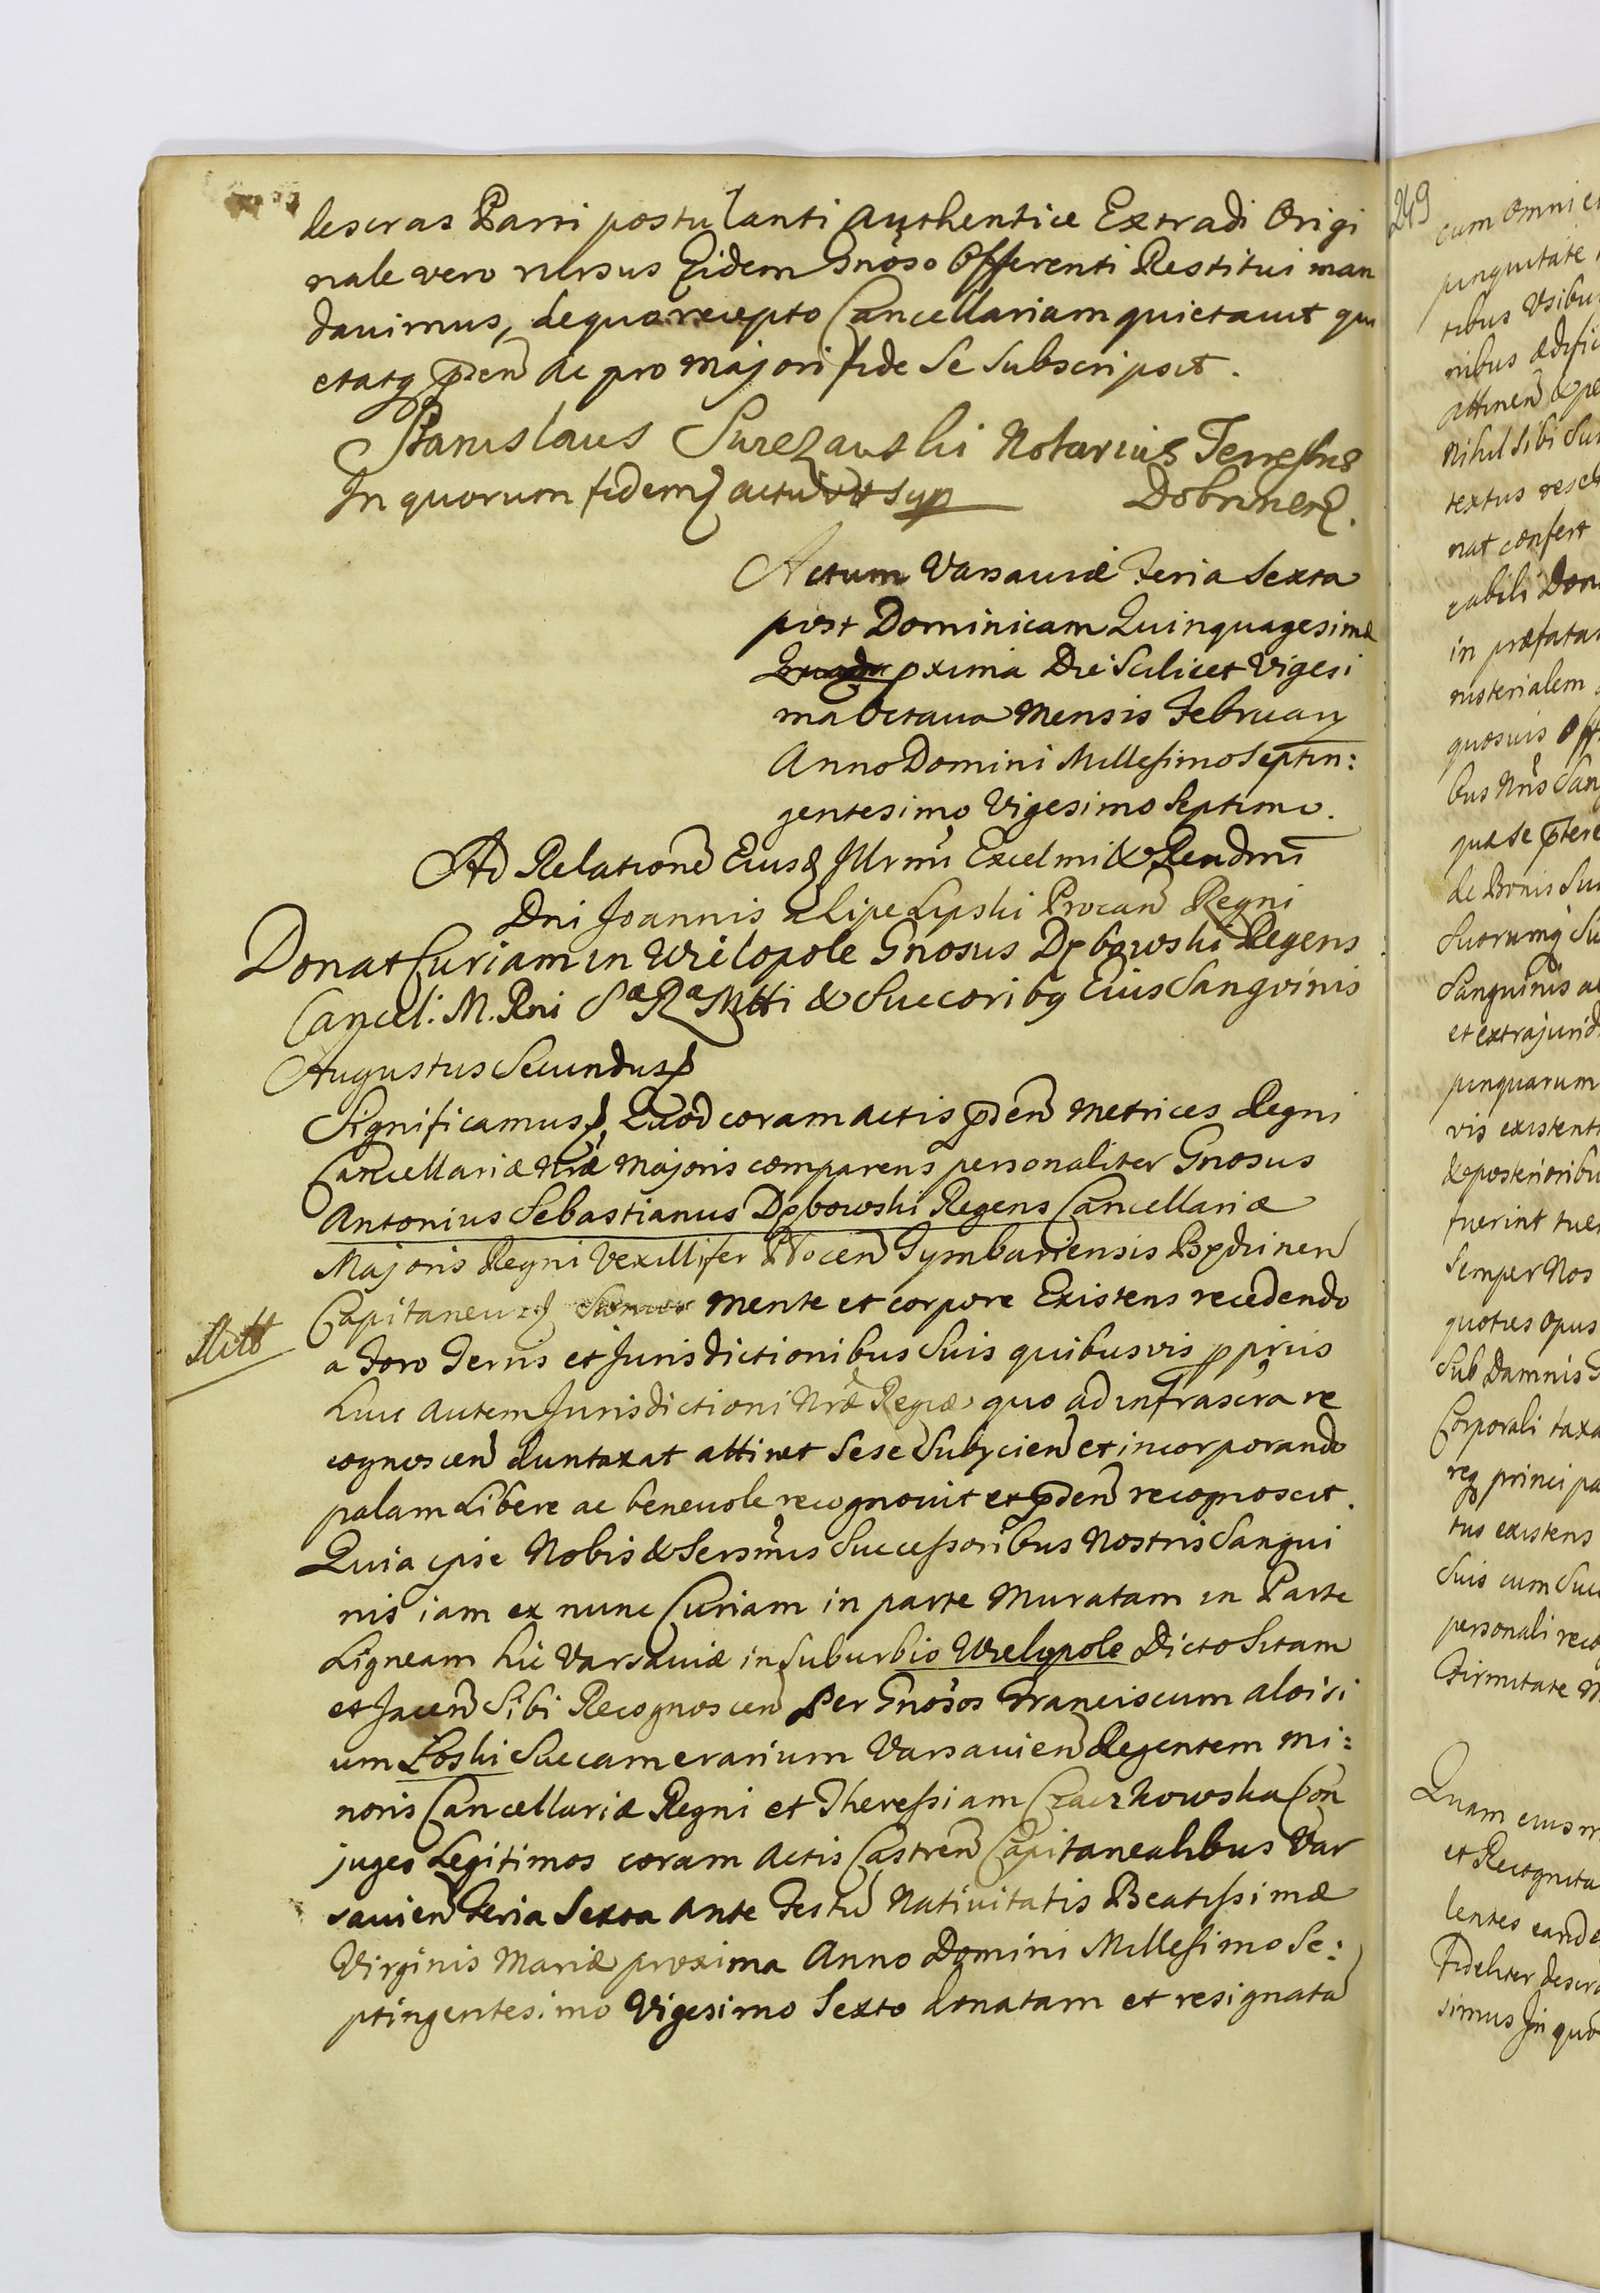 descras Parti postulanti authentice Extradi Origi
nale vero rursus Eidem Gnõso Offerenti Restitui man
davimus, de quo recepto Cancellariam quietavit qui
etatq p̃sen ac pro majori fide Se Subscripsit.
Stanislaus Notarius Terrestris
In quorum fidem Actu utt sup Dobrinen.
Actum Varsaviæ Feria Sexta
post Dominicam Quinquagesimæ
pxima Die Scilicet Vigesi
ma Octava Mensis February
Anno Domini Millesimo Septin:
gentesimo Vigesimo Septimo.
Ad Relationẽ Eiusd Illrmi Excelmi & Rendmi
Dni Joannis a Lipe Lipski Procan Regni
Donat Curiam in Wielopole Gnosus Dębowski Regens
Cancel: M. Rni Sæ Ræ Mtti & Succoribq Eius Sangvinis
Augustus Secundus
Significamus Quod coram actis p̃sen Metrices Regni
Cancellariæ Nræ Majoris comparens personaliter Gnosus
Antonius Sebastianus Dębowski Regens Cancellariæ
Majoris Regni Vexillifer Nocen Tymbariensis
Capitaneus mente et corpore Existens recedendo
a Foro Terris et Jurisdictionibus Suis quibusvis ppriis
huic autem Jurisdictioni Nræ Regiæ quo ad infrascra re
cognoscen duntaxat attinet Sese Subycien et incorporando
palam Libere ac benevole recognovit et p̃sen recognoscit.
Quia ipse Nobis & Sersmis Successoribus Nostris Sangui
nis iam ex nunc Curiam in parte Muratam in Parte
Ligneam hic Varsaviæ in Suburbio Wielopole Dicto Sitam
et Jacen Sibi Recognoscen Per Gnosos Franciscum Aloisi
um Łoski Succamerarium Varsavien Regentem Mi:
noris Cancellariæ Regni et Theressiam Con
juges Legitimos coram Actis Castren Capitanealibus Var
savien Feria Sexta ante Festũ Nativitatis Beatissimæ
Virginis Mariæ proxima Anno Domini Millesimo Se:
ptingentesimo Vigesimo Sexto donatam et resignatã
249
cum omni
tibus Usibus
nihil Sibi
textus
nat confert
in præfatam
nisterialem
quosvis
de Bonis
Sanguinis ac
et extrajurid
pinquarum
vis existenti
& posterioribu
fuerint
Semper Nos
quoties opus
Sub Damnis
Corporali taxa
tus existens
Suis cum Suc
personali reco
Firmitate
Quam eius
et Recognita
lentes eande
Fideliter
simus In quo